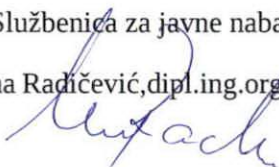 Službenica za javne naba
na Radičević,dipl.ing.org